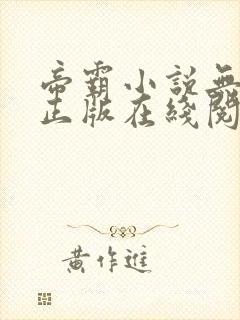 帝霸小説無
正版在綫閱
黄作進